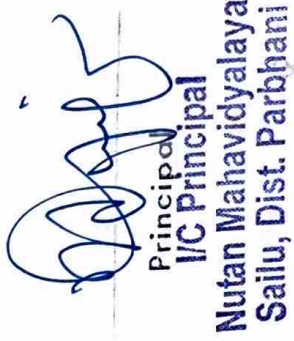 Principal
I/C Principal
Nutan Mahavidyalaya
Sailu, Dist. Parbhani